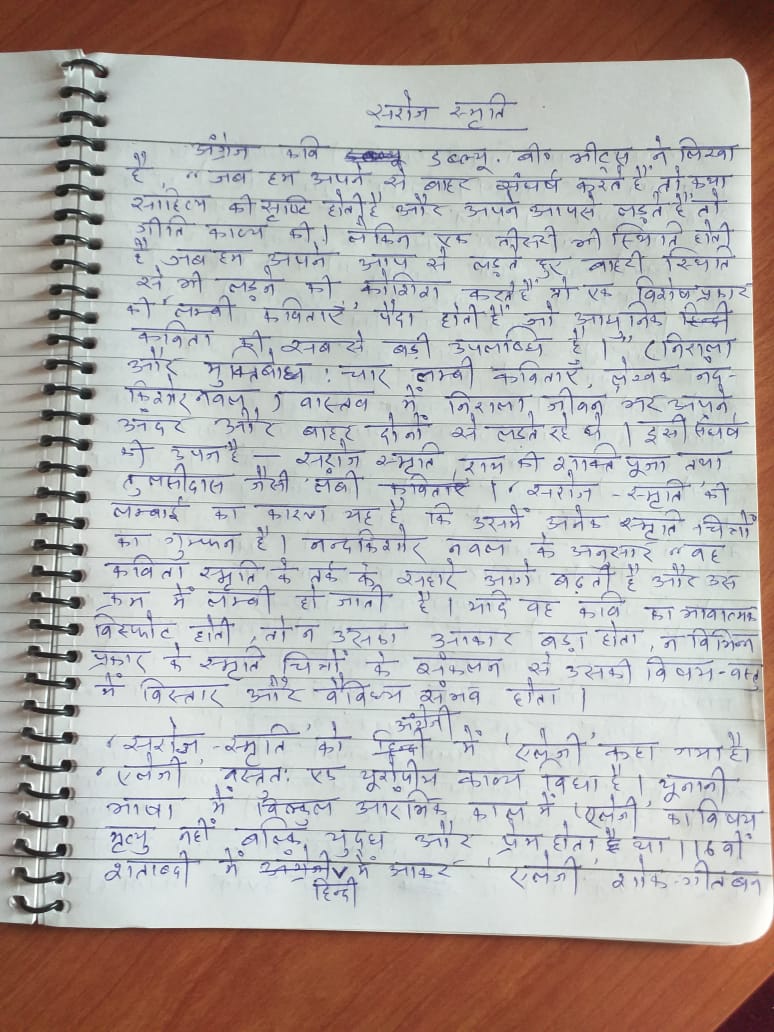 सरोज स्मृति
अंग्रेज कवि डब्ल्यू. बी॰ यीट्स ने लिखा
है, "जब हम अपने से बाहर संघर्ष करते हैं तो कथा
साहित्य की सृष्टि होती है और अपने आपसे लड़ते हैं तो
गीति काव्य की। लेकिन एक तीसरी भी स्थिति होती
है जब हम अपने आप से लड़ते हुए बाहरी स्थिति
से भी लड़ने की कोशिश करते हैं तो एक विशेष प्रकार
की लम्बी कविताएँ पैदा होती हैं जो आधुनिक हिन्दी
कविता की सबसे बड़ी उपलब्धि है।" (निराला
और मुक्तिबोध : चार लम्बी कविताएँ, लेखक नंद-
किशोर नवल) वास्तव में निराला जीवन भर अपने
अंदर और बाहर दोनों से लड़ते रहे थे। इसी संघर्ष
की उपज है — सरोज स्मृति राम की शक्ति पूजा तथा
तुलसीदास जैसी लंबी कविताएँ। 'सरोज-स्मृति' की
लम्बाई का कारण यह है कि उसमें अनेक स्मृति चित्रों
का गुम्फन है। नन्दकिशोर नवल के अनुसार "वह
कविता स्मृति के तर्क के सहारे आगे बढ़ती है और उस
क्रम में लम्बी हो जाती है। यदि वह कवि का भावात्मक
विस्फोट होती, तो न उसका आकार बड़ा होता, न विभिन्न
प्रकार के स्मृति चित्रों के संकलन से उसकी विषय-वस्तु
में विस्तार और वैविध्य संभव होता।
'सरोज-स्मृति' को अंग्रेजी में 'एलेजी' कहा गया है।
'एलेजी' वस्तुतः एक यूरोपीय काव्य विधा है। यूनानी
भाषा में बिल्कुल आरंभिक काल में 'एलेजी' का विषय
मृत्यु नहीं बल्कि युद्ध और प्रेम होता था। 16वीं
शताब्दी में हिन्दी में आकर 'एलेजी' शोक-गीत बन